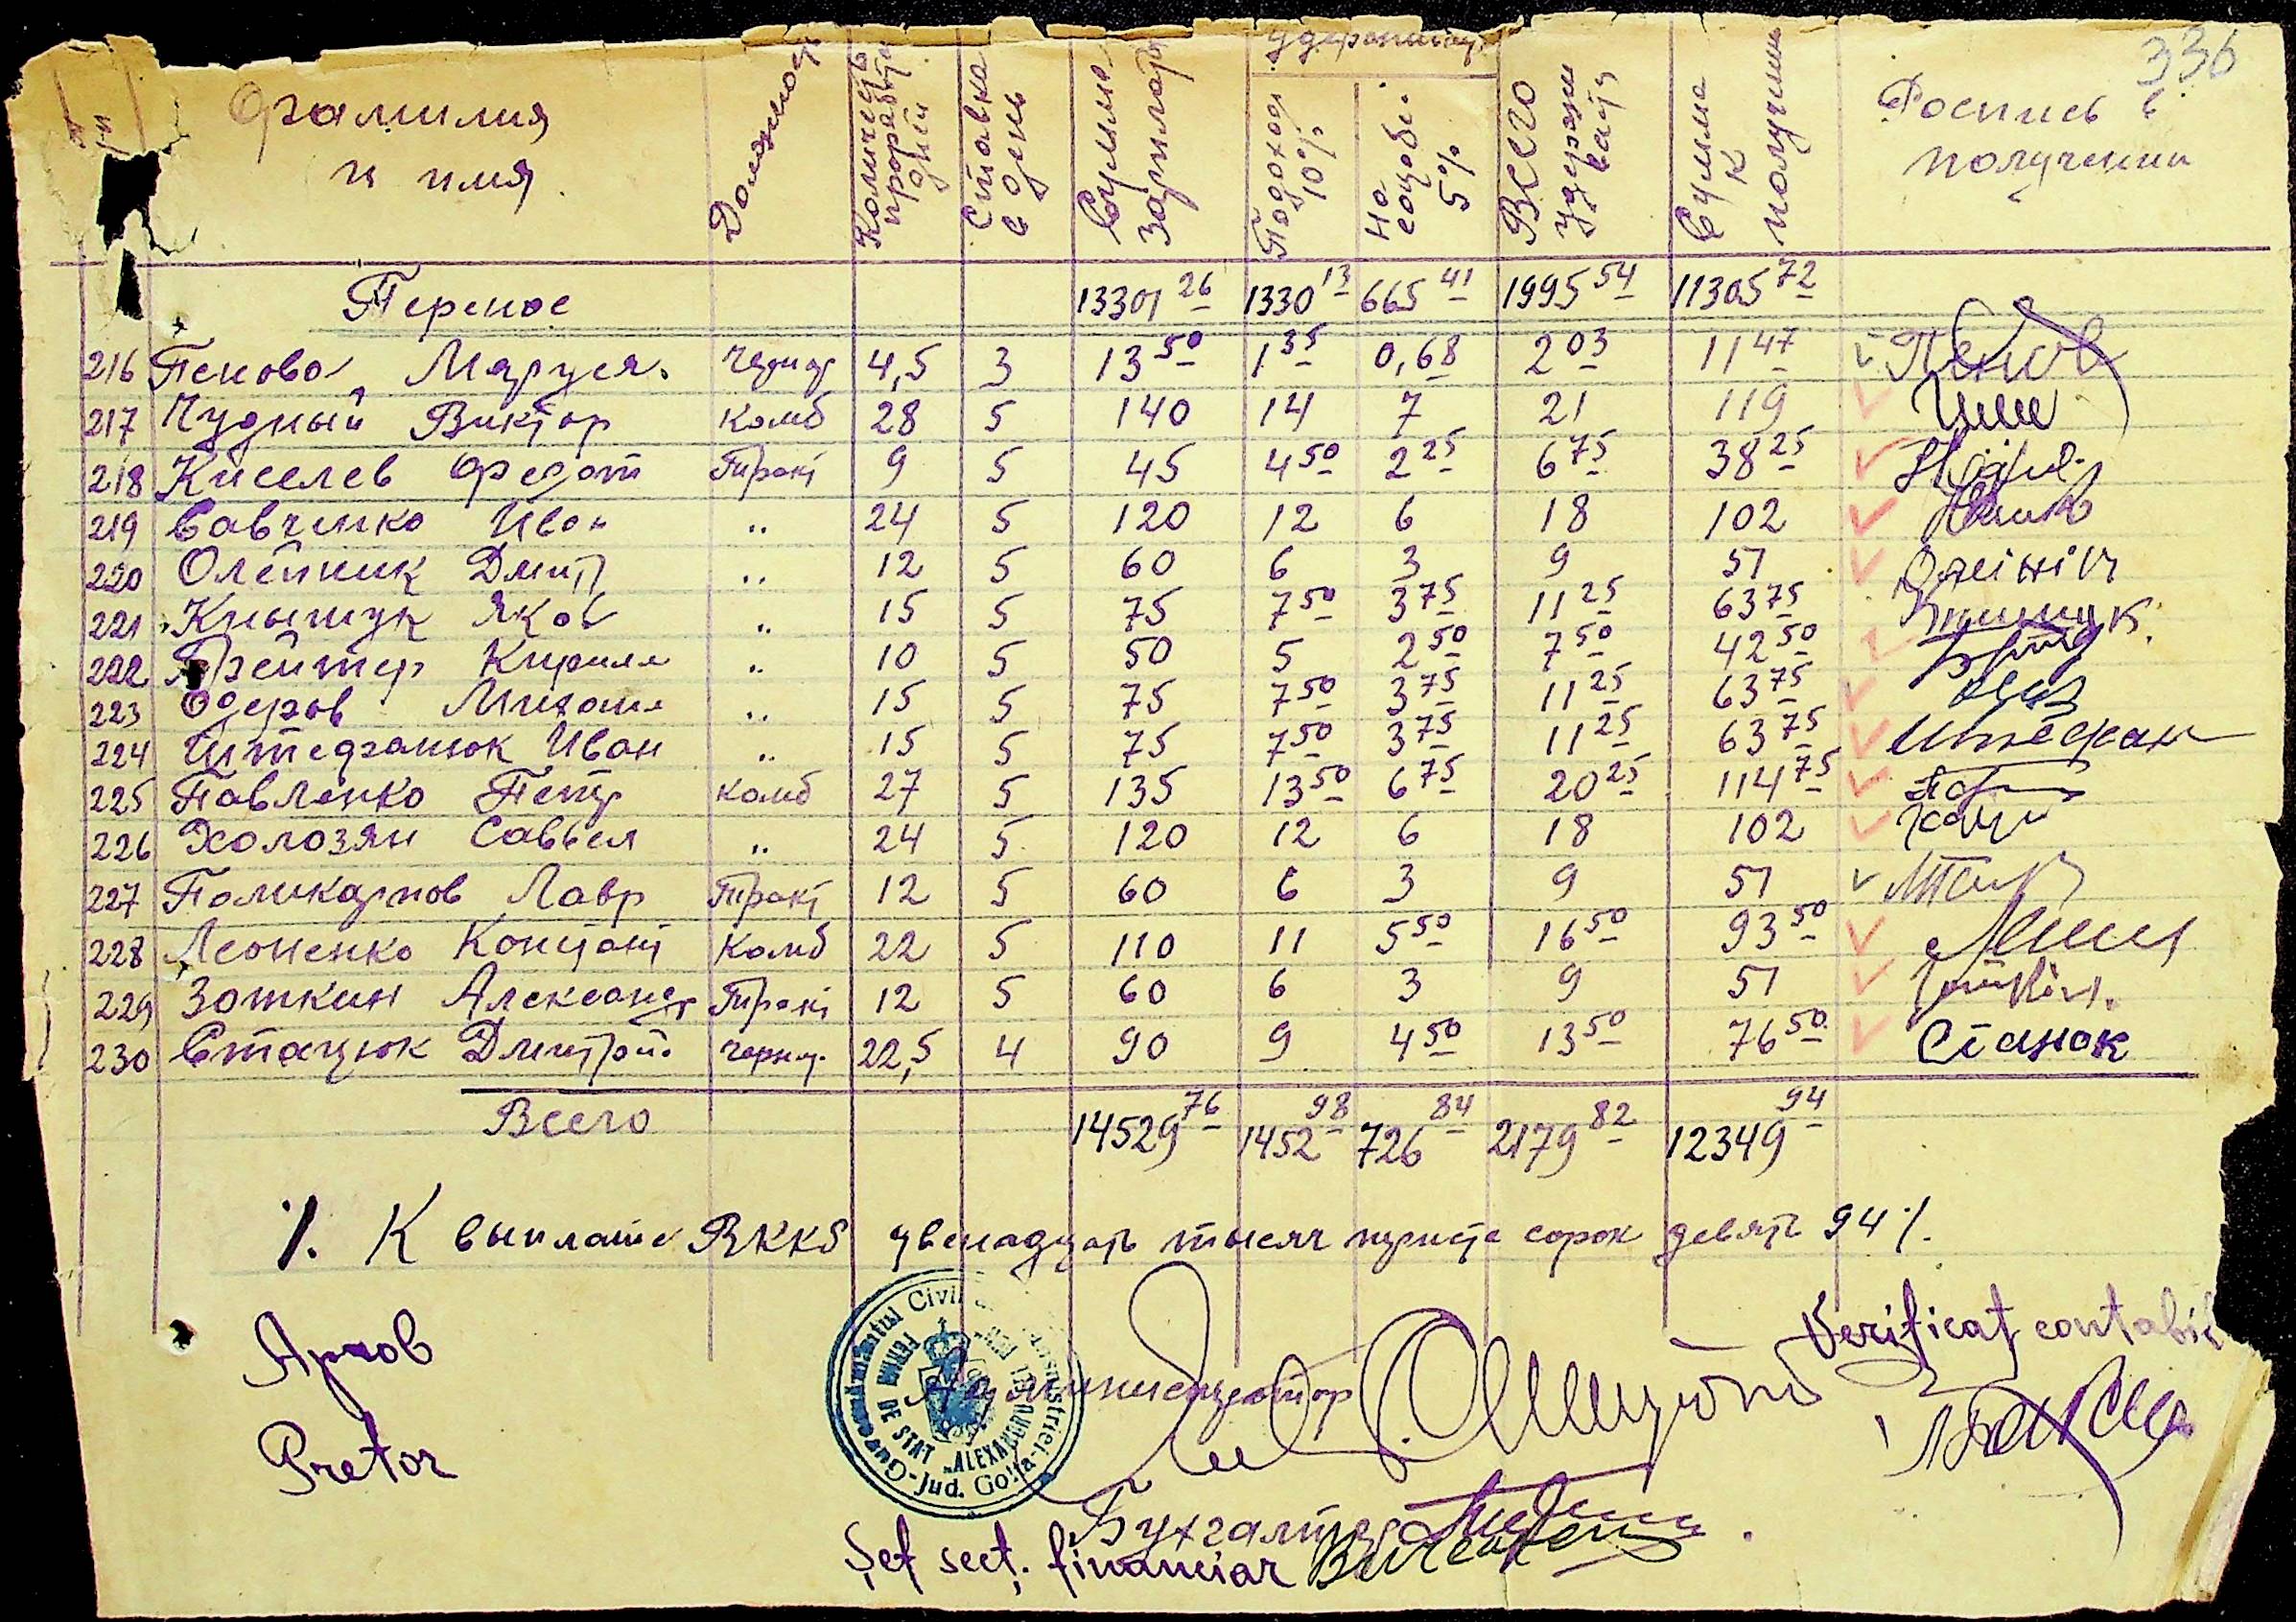 336
№ пп Фамилия и имя Должность Количеств проработ дней Ставка в день Сумма зарплаты Удержания Подоход 10% На соцоби 5% Всего удержи вается Сумма к получению Роспись в получении
Перенос 13301 26 1330 13 665 41 1995 54 11305 72
216 Пенова Маруся. 4,5 3 13 50 1 35 0,68 2 03 11 47
217 Чудный Виктор Комб 28 5 140 14 7 21 119
218 Киселев Федот Тракт 9 5 45 4 50 2 25 6 75 38 25
219 Савченко Иван " 24 5 120 12 6 18 102
220 Олейник Дмит " 12 5 60 6 3 9 51
221 Кнышук Яков " 15 5 75 7 50 3 75 11 25 63 75
222 Кирилл " 10 5 50 5 2 50 7 50 42 50
223 Одеров Михаил " 15 5 75 7 50 3 75 11 25 63 75
224 Штефанюк Иван " 15 5 75 7 50 3 75 11 25 63 75 Штефан
225 Павленко Петр комб 27 5 135 13 50 6 75 20 25 114 75
226 Холозян Саввел " 24 5 120 12 6 18 102
227 Поликарпов Лавр Тракт 12 5 60 6 3 9 51
228 Леоненко Констант Комб 22 5 110 11 5 50 16 50 93 50
229 Зоткин Александр Тракт 12 5 60 6 3 9 51
230 Стацюк Дмитрий 22,5 4 90 9 4 50 13 50 76 50
Всего 14529 76 1452 98 726 84 2179 82 12349 94
К выплате RKKS двенадцать тысяч триста сорок девять 94
Verificat contabil
Администратор
Pretor
Guvernământul Civil al Transnistriei-Jud. Golta
FERMA DE STAT „ALEXANDRU
Бухгалтер
Șef secț. financiar